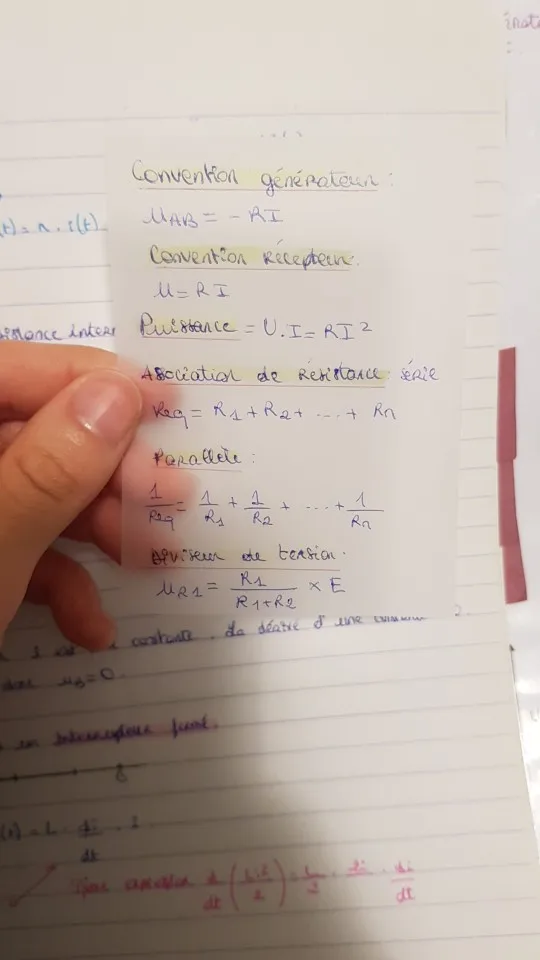 Convention générateur :
U_AB = - RI
Convention récepteur.
U = RI
Puissance = U.I = RI²
Association de résistance série
Req = R1 + R2 + ... + Rn
Parallèle :
1/Req = 1/R1 + 1/R2 + ... + 1/Rn
Diviseur de tension.
U_R1 = R1/(R1+R2) × E
constante. La dérivé d'une
= 0.
en interrupteur fermé.
= L . di/dt . i